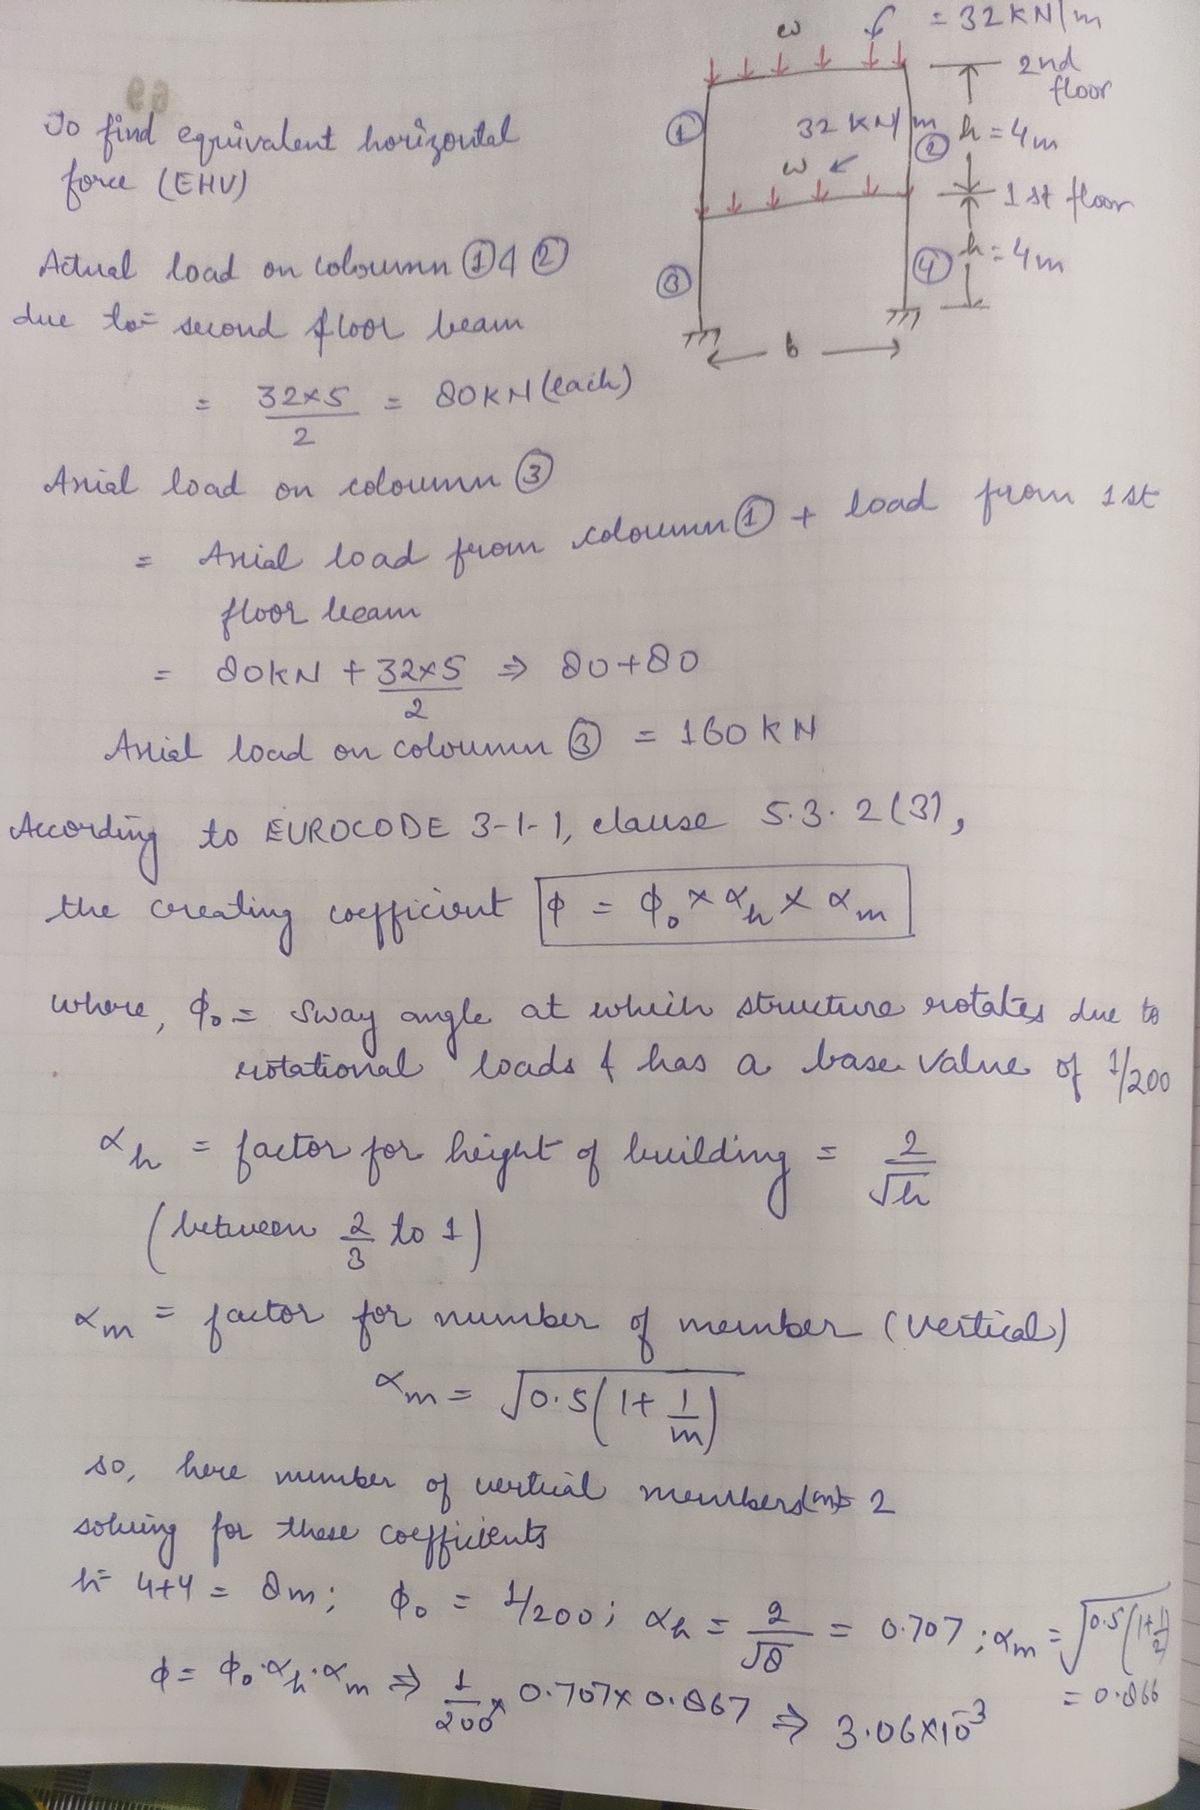 ω = 32 KN/m
2nd
floor
① 32 KN/m ② h = 4m
ω
1st floor
③ ④ h = 4m
b
To find equivalent horizontal
force (EHV)
Actual load on coloumn ① & ②
due to = second floor beam
= 32×5/2 = 80KN (each)
Axial load on coloumn ③
= Axial load from coloumn ① + load from 1st
floor beam
= 80KN + 32×5/2 ⇒ 80+80
Axial load on coloumn ③ = 160 KN
According to EUROCODE 3-1-1, clause 5.3.2(3),
the creating coefficient ϕ = ϕ₀ × αh × αm
where, ϕ₀ = Sway angle at which structure rotates due to
rotational loads & has a base value of 1/200
αh = factor for height of building = 2/√h
(between 2/3 to 1)
αm = factor for number of member (vertical)
αm = √0.5(1+1/m)
so, here number of vertical members(m)= 2
solving for these coefficients
h= 4+4 = 8m; ϕ₀ = 1/200; αh = 2/√8 = 0.707; αm = √0.5(1+1/2)
= 0.866
ϕ = ϕ₀·αh·αm ⇒ 1/200 × 0.707 × 0.867 ⇒ 3.06×10⁻³